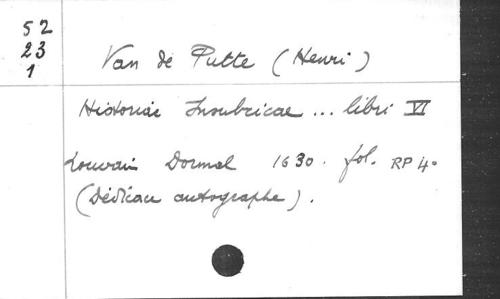 52
23
1
Van de Putte (Henri)
Historiae Insubricae ... libri VI
Louvain Dormal 1630. fol. RP 4°
(Dédicace autographe).